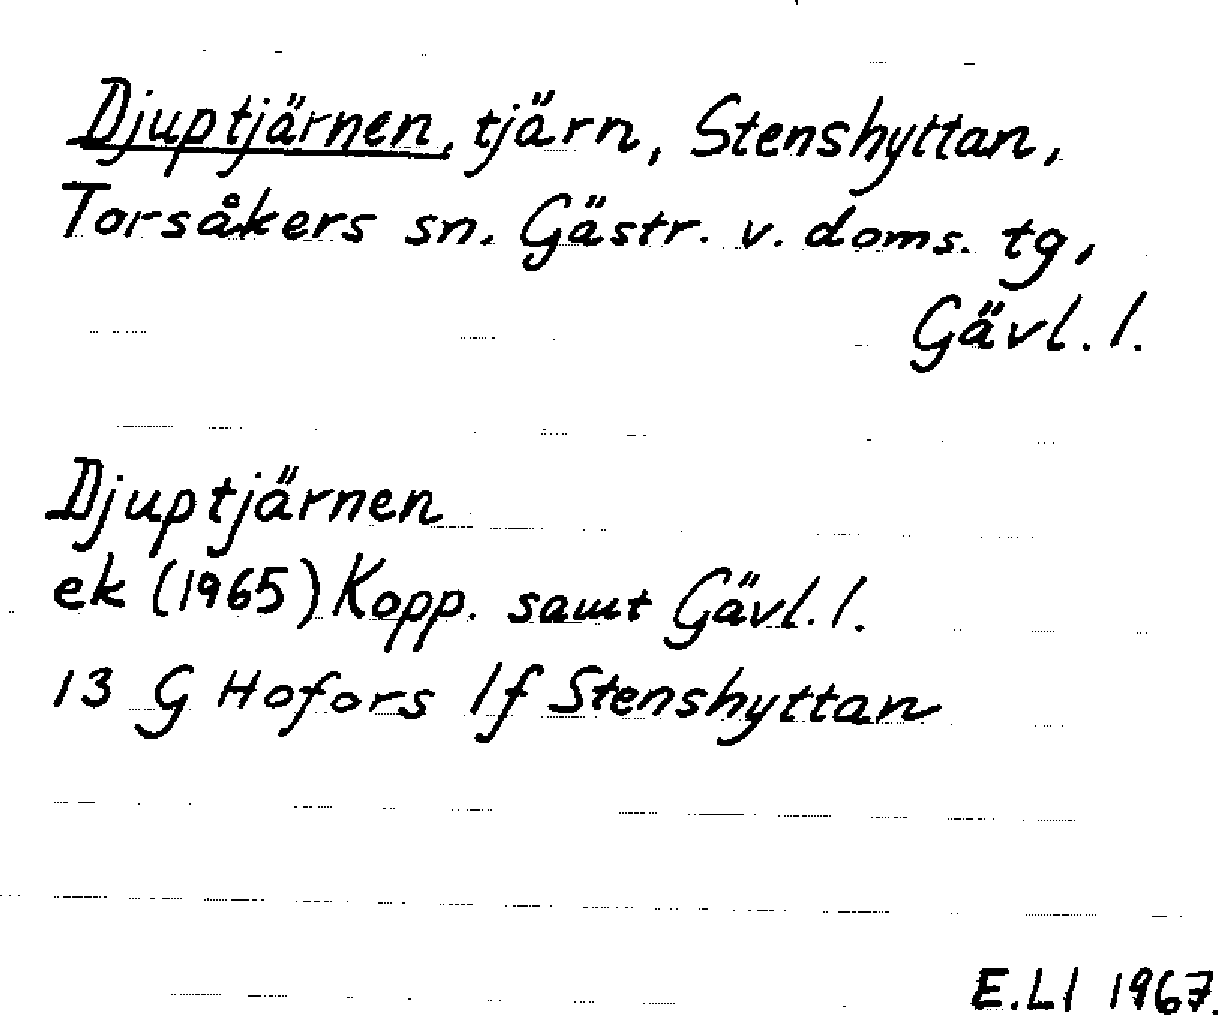 Djuptjärnen, tjärn, Stenshyttan,
Torsåkers sn. Gästr. v. doms. tg,
Gävl. l.
Djuptjärnen
ek (1965) Kopp. samt Gävl. l.
13 G Hofors lf Stenshyttan
E.Ll 1967.